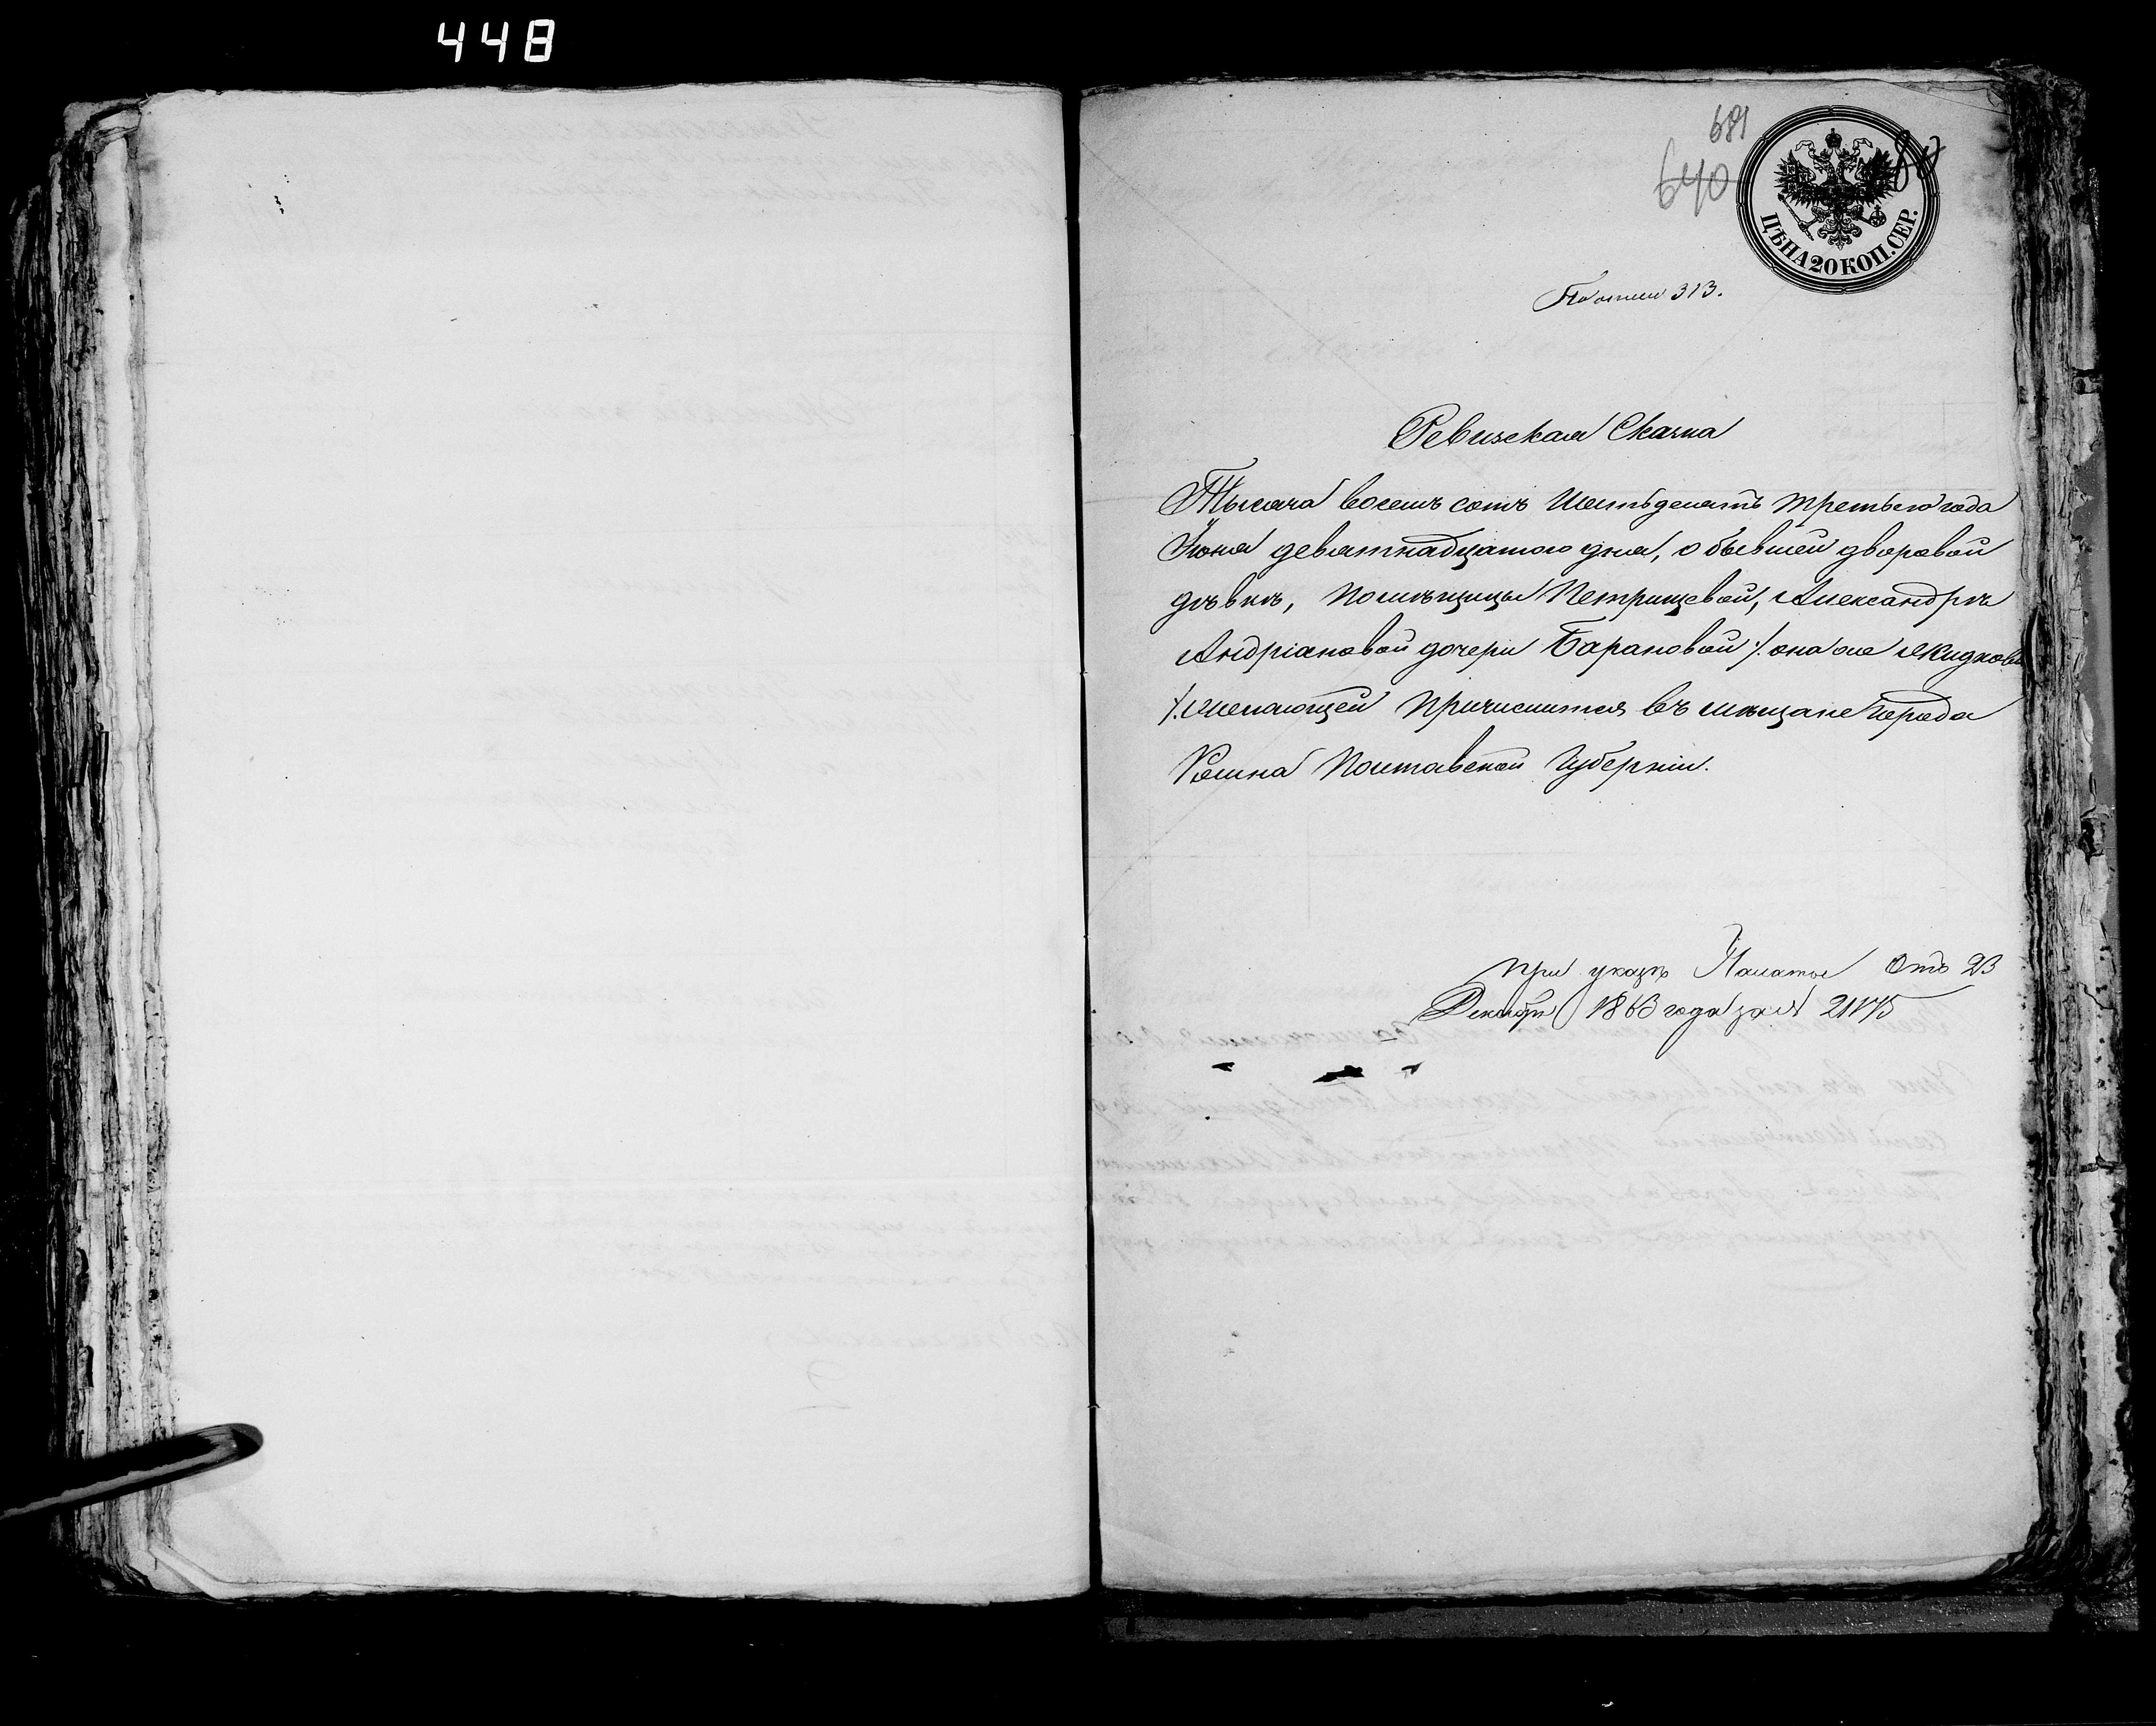 448
681
640
80
ЦѢНА 20 КОП. СЕР.
По описи 313.
Ревизская Сказка
Тысяча восемь сотъ Шестьдесятъ третьяго года
Июня девятнадцатого дня, о бывшей дворовой
дѣвкѣ, помѣщицы Петрищевой, Александрѣ
Андріановой дочери Барановой /. она же Жидкова
/. желающей причислится въ мѣщане города
Ромна Полтавской Губерніи.
При указѣ Палаты отъ 23
Декабря 1863 года за № 21175